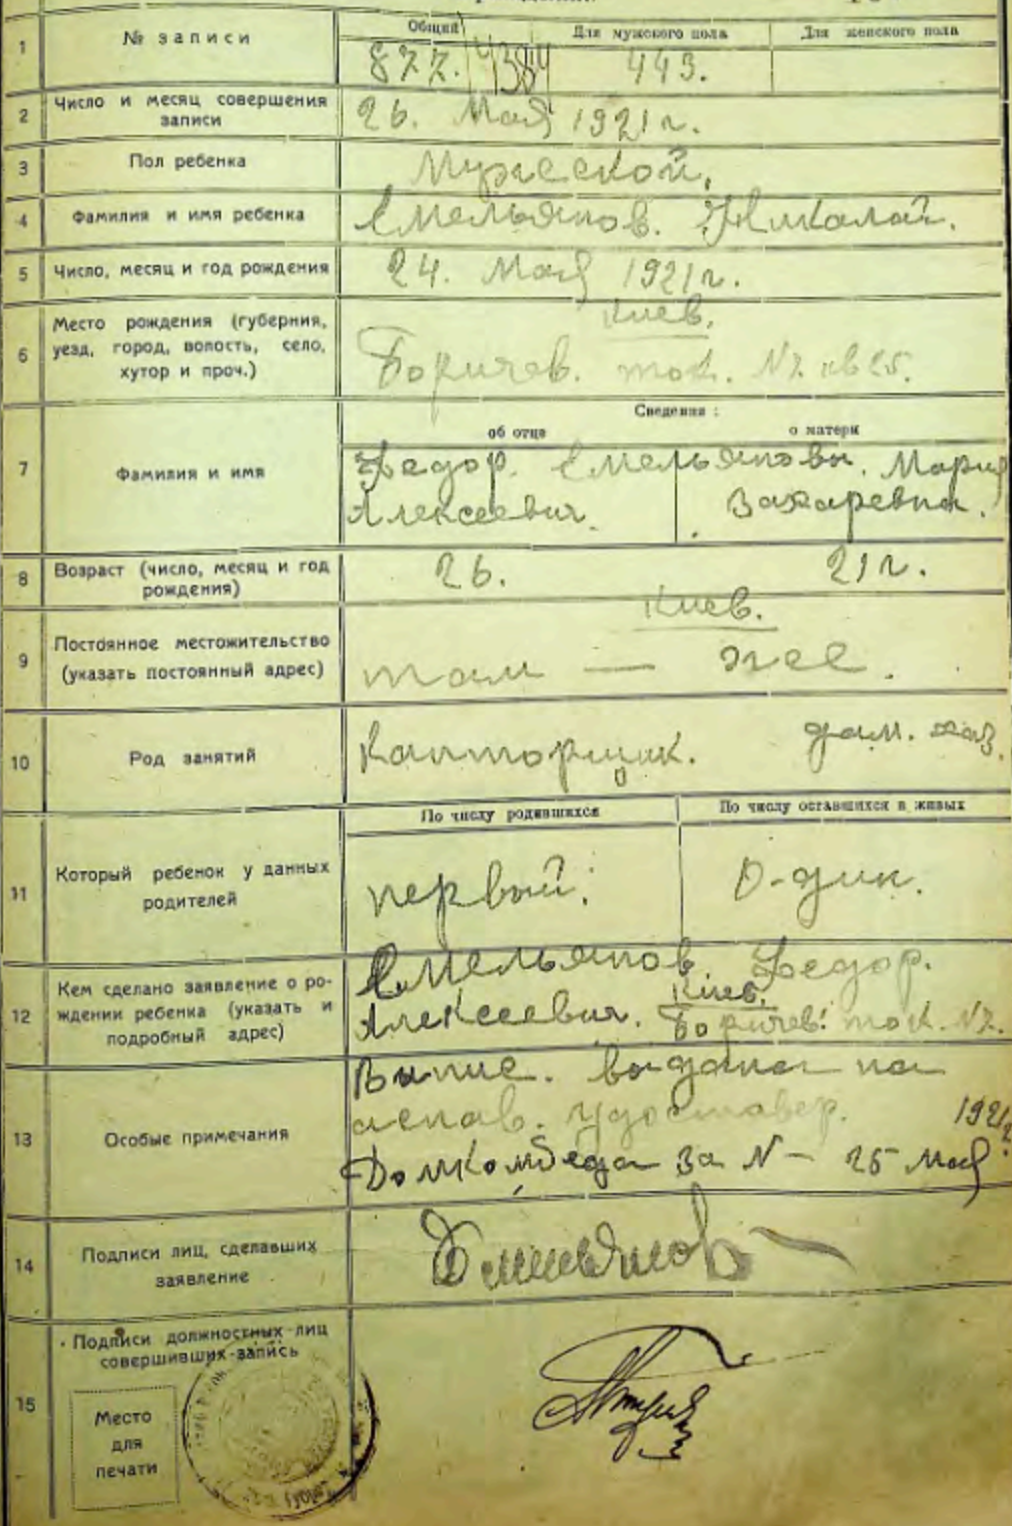 1 № записи
Общий Для мужского пола Для женского пола
877. 4384 443.
2 Число и месяц совершения
записи
26. Мая 1921 г.
3 Пол ребенка Мужеской.
4 Фамилия и имя ребенка Емельянов. Николай.
5 Число, месяц и год рождения 24. Мая 1921 г.
6 Место рождения (губерния,
уезд, город, волость, село,
хутор и проч.)
Киев.
Боричев. ток. №7. кв 25.
Сведения:
об отце о матери
7 Фамилия и имя
Федор. Емельяновы. Мария
Алексеевич. Захаревна.
8 Возраст (число, месяц и год
рождения)
26. 21 г.
9 Постоянное местожительство
(указать постоянный адрес)
Киев.
там — жее.
10 Род занятий Капторщик. дам. хаз.
По числу родившихся По числу оставшихся в живых
11 Который ребенок у данных
родителей
первый. О-дин.
12 Кем сделано заявление о ро-
ждении ребенка (указать и
подробный адрес)
Емельянов. Федор.
Алексеевич. Киев. Боричев. ток. №7.
13 Особые примечания
Выпис. выдана на
основ. удоставер. 1921 г.
Домкомбеда за № – 25 Мая
14 Подписи лиц, сделавших
заявление
Емельянов
15 Подписи должностных лиц
совершивших запись
Место
для
печати